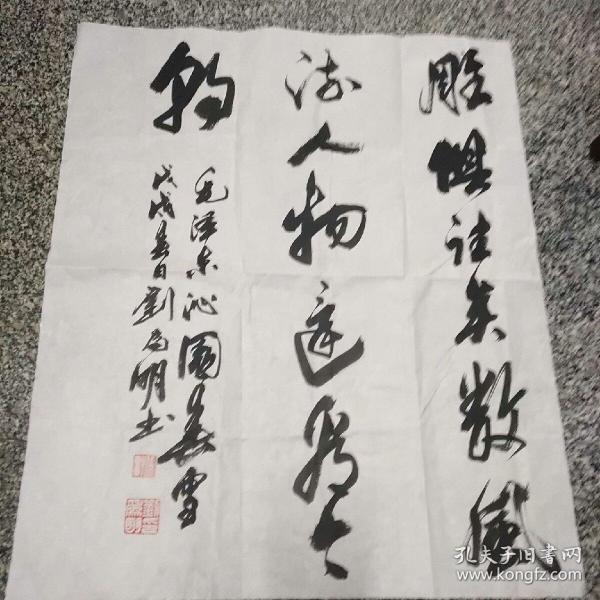 雕俱往矣数風
流人物還看今
朝
毛泽东沁園春雪
戊戌春日劉为明书
孔夫子旧书网
www.kongfz.com